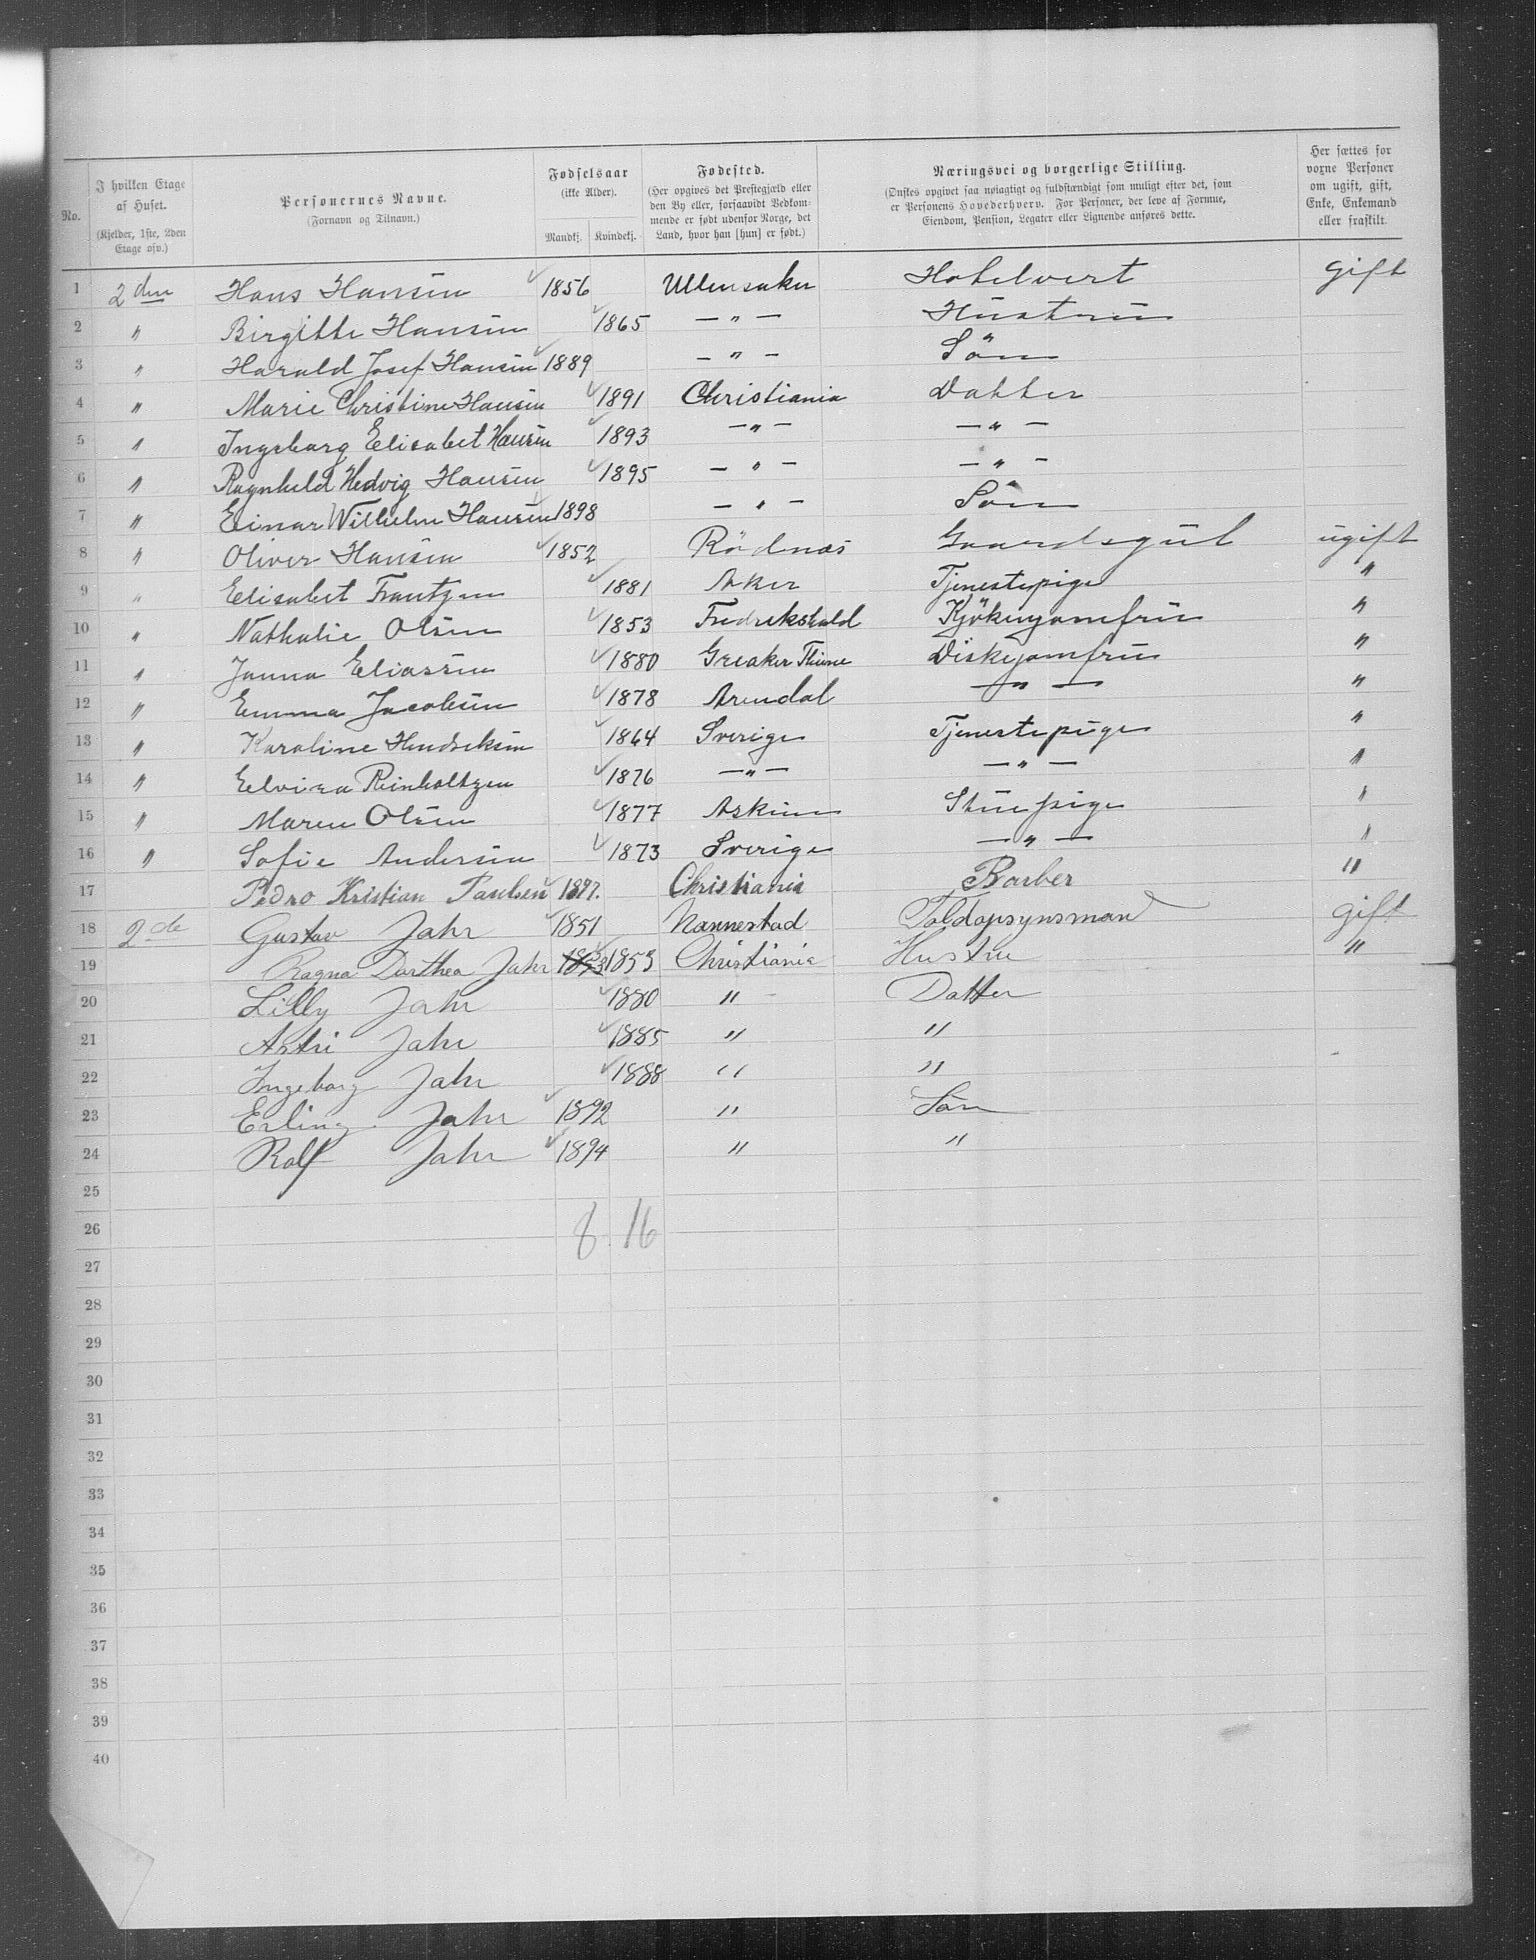 No. | I hvilken Etage af Huset. (Kjelder, 1ste, 2den Etage osv.) | Personernes Navne. (Fornavn og Tilnavn.) | Fødselsaar (ikke Alder). Mandkj. | Kvindekj. | Fødested. (Her opgives det Prestegjæld eller den By eller, forsaavidt Vedkommende er født udenfor Norge, det Land, hvor han [hun] er født.) | Næringsvei og borgerlige Stilling. (Ønskes opgivet saa nøiagtigt og fuldstændigt som muligt efter det, som er Personens Hovederhverv. For Personer, der leve af Formue, Eiendom, Pension, Legater eller Lignende anføres dette. | Her sættes for voxne Personer om ugift, gift, Enke, Enkemand eller fraskilt.
1 2den Hans Hansen 1856 Ullensaker Hotelvert gift
2 " Birgitte Hansen 1865 — " — Hüstrü
3 " Harald Josef Hansen 1889 — " — Sön
4 " Marie Christine Hansen 1891 Christiania Datter
5 " Ingeborg Elisabet Hansen 1893 — " — — " —
6 " Ragnhild Hedvig Hansen 1895 — " — — " —
7 " Einar Wilhelm Hansen 1898 — " — Sön
8 " Oliver Hansen 1852 Rödnæs Gaardsgüt ugift
9 " Elisabet Frantzen 1881 Aker Tjenestepige "
10 " Nathalie Olsen 1853 Fredrikshald Kjökenjomfrü "
11 " Janna Eliassen 1880 Greaker Thüne Diskjomfrü "
12 " Emma Jacobsen 1878 Arendal — " — "
13 " Karoline Hendriksen 1864 Sverige Tjenestepige "
14 " Elvira Reinholtzen 1876 — " — — " — "
15 " Maren Olsen 1877 Askim Stüepige "
16 " Sofie Andersen 1873 Sverige — " — "
17 Pedro Kristian Paulsen 1877. Christiania Barber "
18 2de Gustav Jahr 1851 Nannestad Toldopsynsmand gift
19 Ragna Dorthea Jahr 1853 1853 Christiania Hustru "
20 Lilly Jahr 1880 " Datter
21 Astri Jahr 1885 " "
22 Ingeborg Jahr 1888 " "
23 Erling Jahr 1892 " Søn
24 Rolf Jahr 1894 " "
25
26 8 16
27
28
29
30
31
32
33
34
35
36
37
38
39
40